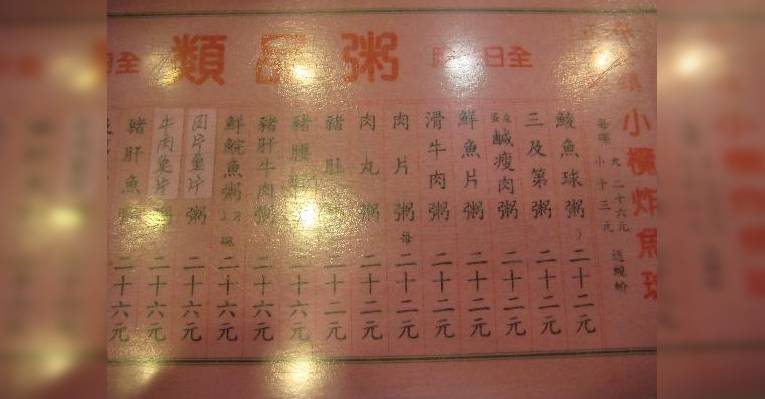 粥品類
全日
小欖炸魚球
每碟 大 二十六元
小 十三元
送蜆蚧
鯪魚球粥 二十二元
三及第粥 二十二元
鹹瘦肉粥 二十二元
鮮魚片粥 二十二元
滑牛肉粥 二十二元
肉片粥 每 二十二元
肉丸粥 二十二元
豬肚粥 二十二元
豬腰粥 二十六元
豬肝牛肉粥 二十六元
鮮鯇魚粥 二十六元
肉片魚片粥 二十六元
牛肉魚片粥 二十六元
豬肝魚粥 二十六元